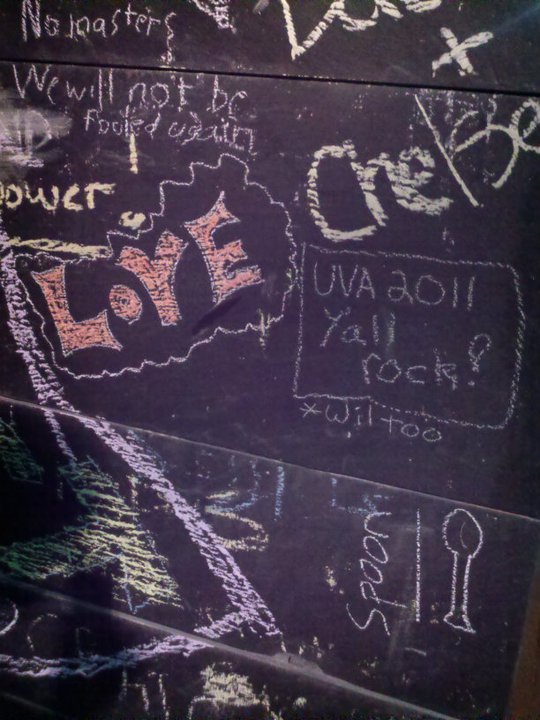 No masters
We will not be
Fooled again
power
LOVE
One
UVA 2011
Yall
rock!
*Wil too
Spoon